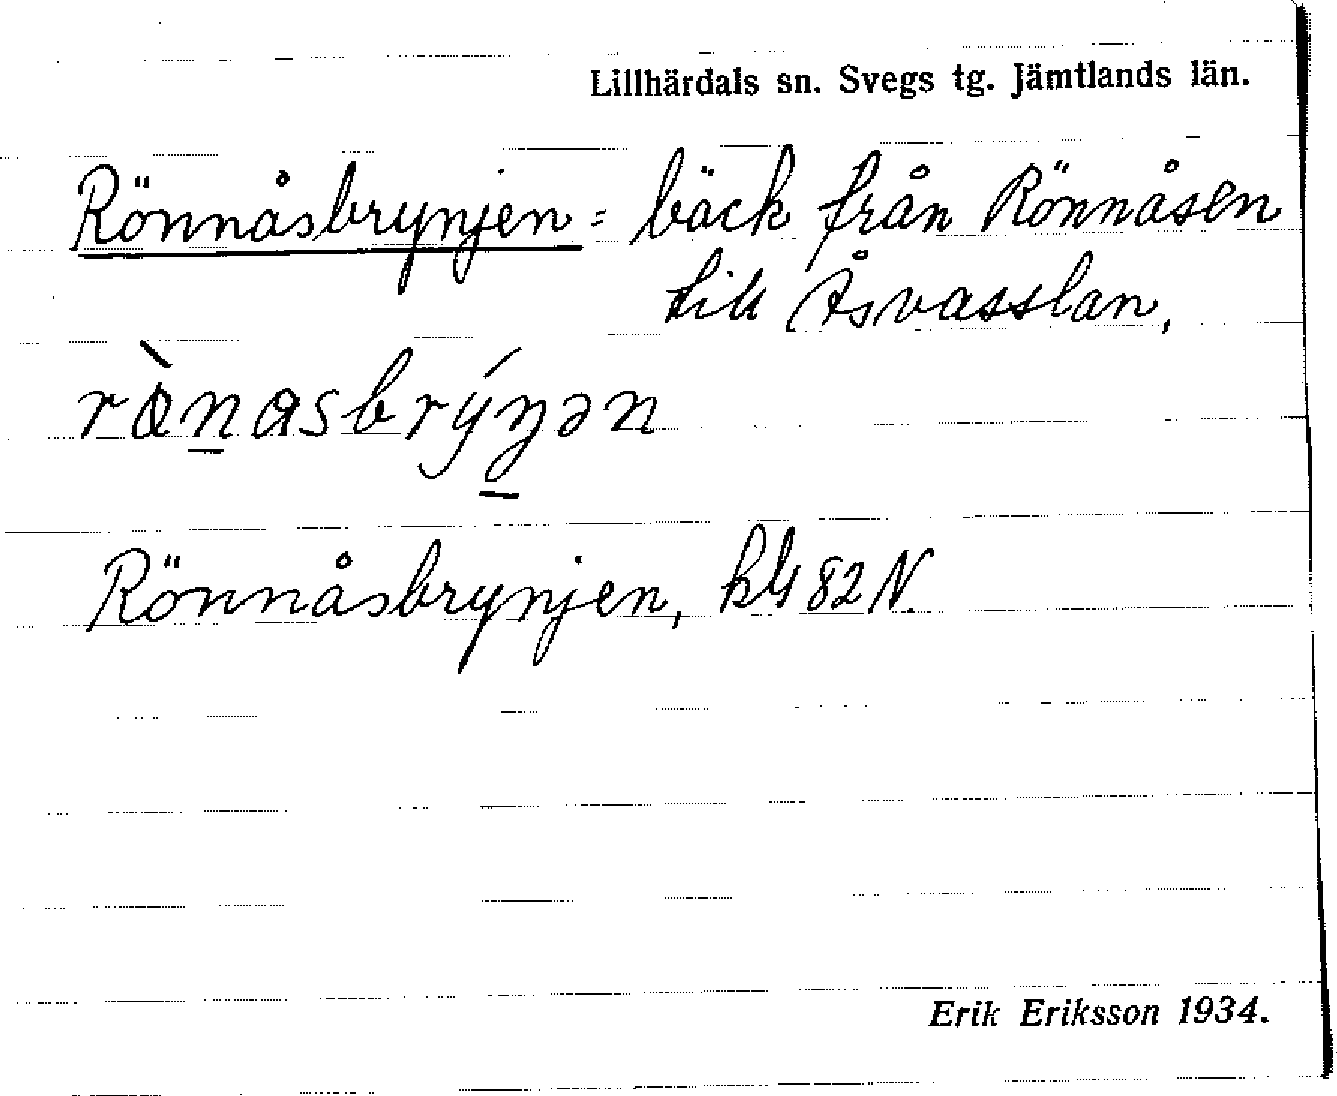 Lillhärdals sn. Svegs tg. Jämtlands län.
Rönnåsbrynjen = bäck från Rönnåsen
till Åsvasslan,
Rönnåsbrynjen, kbl 82 N.
Erik Eriksson 1934.